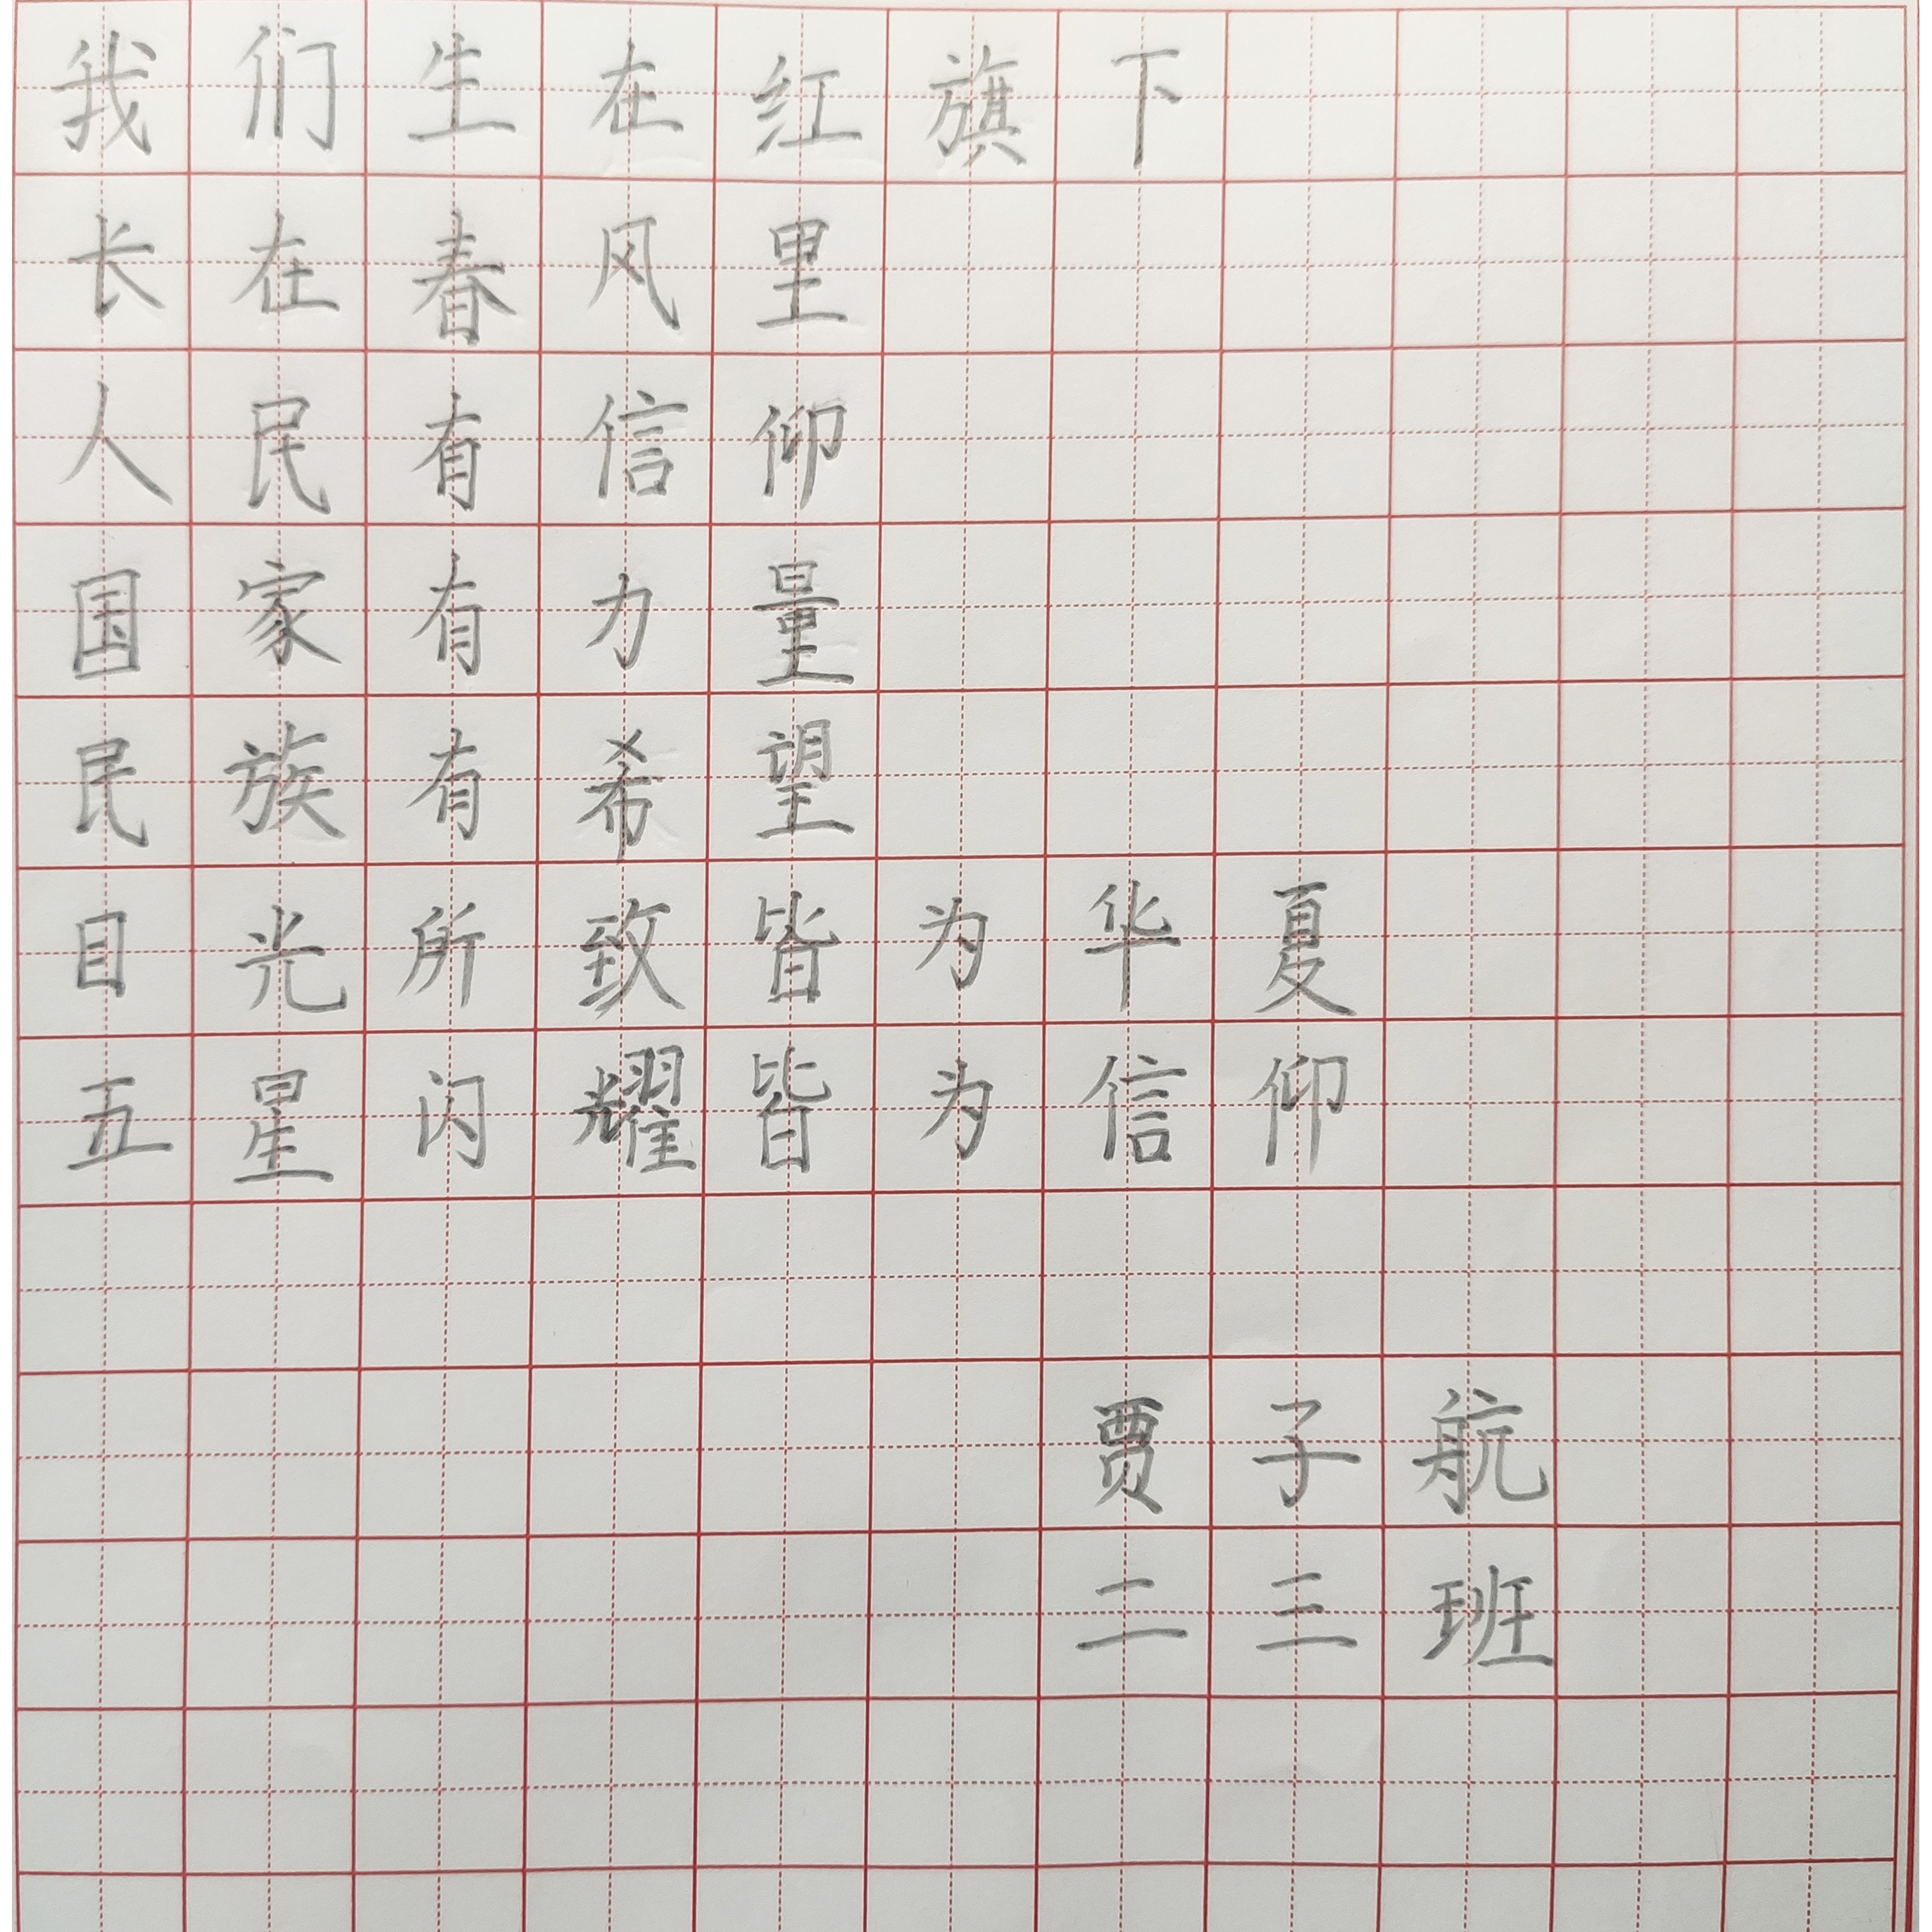 我们生在红旗下
长在春风里
人民有信仰
国家有力量
民族有希望
目光所致皆为华夏
五星闪耀皆为信仰
贾子航
二三班